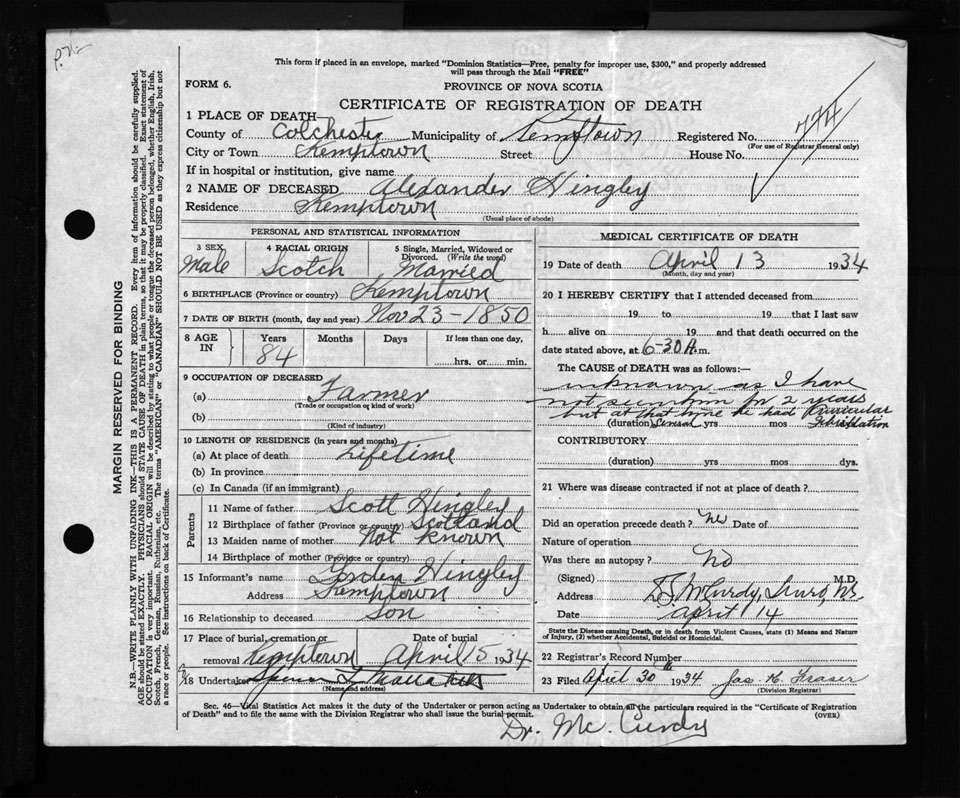 This form if placed in an envelope, marked "Dominion Statistics—Free, penalty for improper use, $300," and properly addressed
will pass through the Mail "FREE"
FORM 6.
PROVINCE OF NOVA SCOTIA
CERTIFICATE OF REGISTRATION OF DEATH
1 PLACE OF DEATH—
County of Colchester Municipality of Kemptown Registered No. 774
(For use of Registrar General only)
City or Town Kemptown Street House No.
If in hospital or institution, give name
2 NAME OF DECEASED Alexander Hingley
Residence Kemptown
(Usual place of abode)
PERSONAL AND STATISTICAL INFORMATION
3 SEX 4 RACIAL ORIGIN 5 Single, Married, Widowed or
Divorced. (Write the word)
Male Scotch Married
6 BIRTHPLACE (Province or country) Kemptown
7 DATE OF BIRTH (month, day and year) Nov 23-1850
8 AGE IN Years Months Days If less than one day,
84 hrs. or min.
9 OCCUPATION OF DECEASED
(a) Farmer
(Trade or occupation or kind of work)
(b)
(Kind of industry)
10 LENGTH OF RESIDENCE (in years and months)
(a) At place of death Lifetime
(b) In province
(c) In Canada (if an immigrant)
Parents
11 Name of father Scott Hingley
12 Birthplace of father (Province or country) Scotland
13 Maiden name of mother Not Known
14 Birthplace of mother (Province or country)
15 Informant's name Gorden Hingley
Address Kemptown
16 Relationship to deceased Son
17 Place of burial, cremation or Date of burial
removal Kemptown April 15 1934
18 Undertaker
(Name and address)
MEDICAL CERTIFICATE OF DEATH
19 Date of death April 13 1934
(Month, day and year)
20 I HEREBY CERTIFY that I attended deceased from
19 to 19 that I last saw
h alive on 19 and that death occurred on the
date stated above, at 6-30 A.m.
The CAUSE of DEATH was as follows:—
unknown as I have
not seen him for 2 years
but at that time he had Auricular
(duration) yrs mos Fibrillation
CONTRIBUTORY
(duration) yrs mos dys.
21 Where was disease contracted if not at place of death?
Did an operation precede death? No Date of
Nature of operation
Was there an autopsy? No
(Signed) M.D.
Address McCurdy, Truro, NS
Date April 14
State the Disease causing Death, or in death from Violent Causes, state (1) Means and Nature
of Injury, (2) whether Accidental, Suicidal or Homicidal.
22 Registrar's Record Number
23 Filed April 30th 1934 Jas. K. Fraser
(Division Registrar)
Sec. 46—Vital Statistics Act makes it the duty of the Undertaker or person acting as Undertaker to obtain all the particulars required in the "Certificate of Registration
of Death" and to file the same with the Division Registrar who shall issue the burial permit. (OVER)
Dr. Mc. Curdy
MARGIN RESERVED FOR BINDING
N.B.—WRITE PLAINLY WITH UNFADING INK—THIS IS A PERMANENT RECORD. Every item of information should be carefully supplied.
AGE should be stated EXACTLY. PHYSICIANS should STATE CAUSE OF DEATH in plain terms, so that it may be properly classified. Exact statement of
OCCUPATION is very important. RACIAL ORIGIN will be described by stating to what people or tongue the deceased person belonged, whether English, Irish,
Scotch, French, German, Russian, Ruthenian, etc. The terms "AMERICAN" or "CANADIAN" SHOULD NOT BE USED as they express citizenship but not
a race or people. See instructions on back of Certificate.